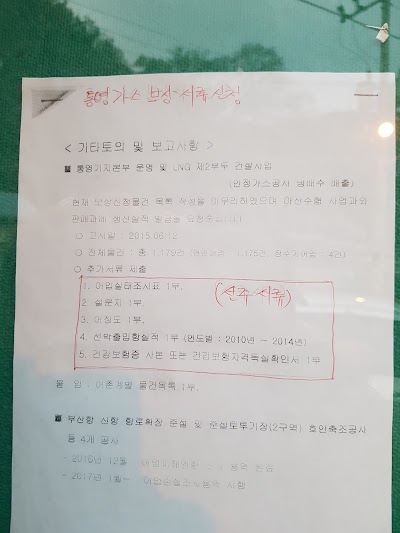 통영 가스 보상 서류 신청
< 기타토의 및 보고사항 >
■ 통영기지본부 운영 및 LNG 제2부두 건설사업
(안정가스공사 냉배수 배출)
현재 보상신청물건 목록 작성을 마무리하였으며 마산수협 사업과와
판매과에 생산실적 발급을 요청
○ 고시일 : 2015.06.12
○ 전체물건 : 총 1,179건
○ 추가서류 제출
1. 어업실태조사표 1부.
(선주 서류)
2. 설문지 1부.
3. 어장도 1부.
4. 선박출입항실적 1부 (연도별 : 2010년 ~ 2014년)
5. 건강보험증 사본 또는 건강보험자격득실확인서 1부
붙 임 : 어촌계별 물건목록 1부.
■ 부산항 신항 항로확장 준설 및 준설토투기장(2구역) 호안축조공사
등 4개 공사
- 2016년 12월 용역 완료
- 2017년 1월~ 시행